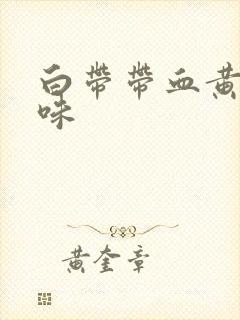 白带带血黄
味
黄奎章